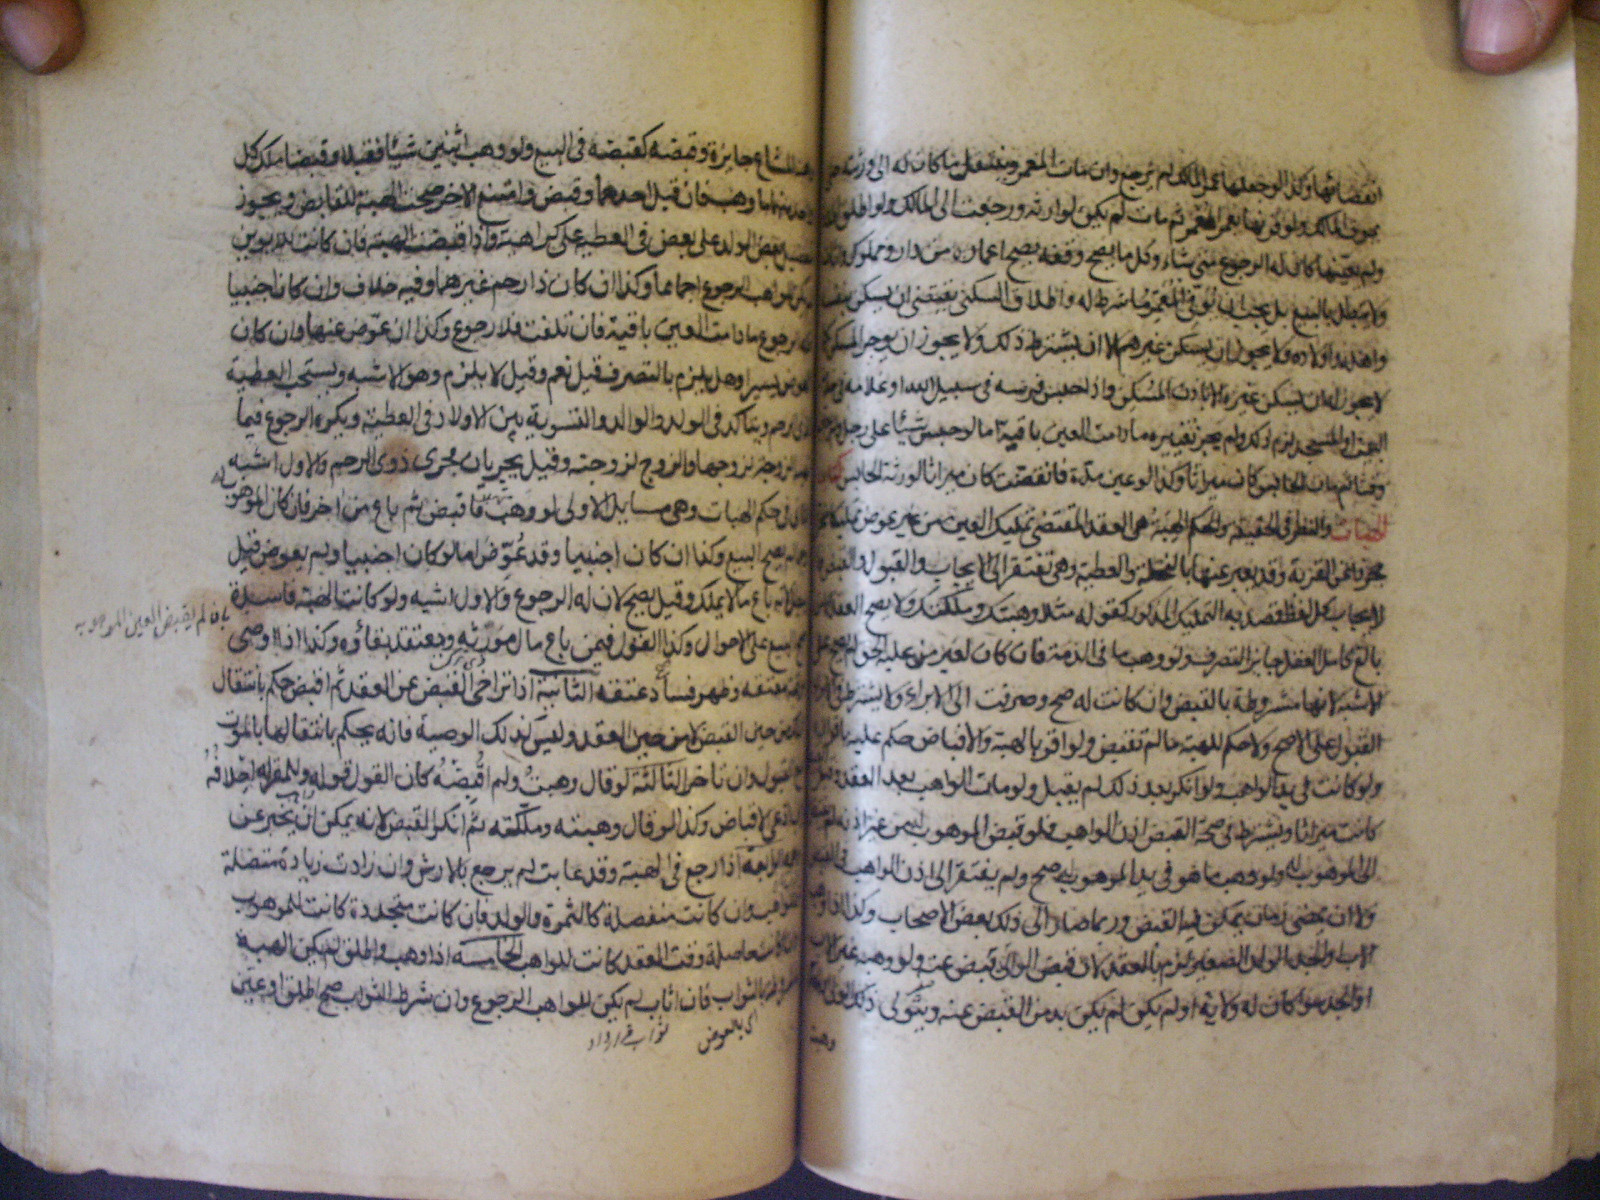 انقضائها وكذا لو جعلها عمر المالك لم ترجع وان مات المعمر وينتقل ما كان له الى ورثته حتى
يموت المالك ولو قرنها بعمر المعمر ثم مات لم يكن لوارثه ورجعت الى المالك ولو اطلق المدة
ولم يعينها كان له الرجوع متى شاء وكل ما يصح وقفه يصح اعماره من دار ومملوك واثاث
ولا تبطل بالبيع بل يجب ان يوفى المعمر ما شرط له واطلاق السكنى يقتضى ان يسكن بنفسه
واهله واولاده ولا يجوز ان يسكن غيرهم الا ان يشترط ذلك ولا يجوز ان يوجر السكنى كما
لا يجوز له ان يسكن غيره الا باذن المسكن واذا حبس فرسه فى سبيل الله او غلامه فى خدمة
البيت او المسجد لزم ذلك ولم يجز تغييره ما دامت العين باقية اما لو حبس شيئا على رجل ولم
وقتا ثم مات الحابس كان ميراثا وكذا لو عين مدة فانقضت كان ميراثا لورثة الحابس كتاب
الهبات والنظر فى الحقيقة والحكم الهبة هى العقد المقتضى تمليك العين من غير عوض تمليكا
مجردا عن القربة وقد يعبر عنها بالنحلة والعطية وهى تفتقر الى الايجاب والقبول والقبض
لايجاب كل لفظ قصد به التمليك المذكور كقوله مثلا وهبتك وملكتك ولا يصح العقد
بالغ كامل العقل جايز التصرف ولو وهب ما فى الذمة فان كان لغير من عليه الحق لم يصح على
الاشبه لانها مشروطة بالقبض وان كانت له صح وصرفت الى الابراء ولا يشترط فى
القبول على الاصح ولا حكم للهبة ما لم تقبض ولو اقر بالهبة والاقباض حكم عليه باقراره
ولو كانت فى يد الواهب ولو انكر بعد ذلك لم يقبل ولو مات الواهب بعد العقد وقبل
كانت ميراثا ويشترط فى صحة القبض اذن الواهب فلو قبض الموهوب من غير اذنه لم
الى الموهوب له ولو وهب ما هو فى يد الموهوب له صح ولم يفتقر الى اذن الواهب فى القبض
ولا ان يمضى زمان يمكن فيه القبض وربما صار الى ذلك بعض الاصحاب وكذا اذا وهب
الاب او الجد الولد الصغير لزم بالعقد لان قبض الولى قبض عنه ولو وهبه غير الاب
او الجد سوا كان له ولاية او لم يكن لم يكن بد من القبض عنه ويتولى ذلك الولى
وهبة
وهبة المشاع جايزة وقبضه كقبضه فى البيع ولو وهب اثنين شيئا فقبلا وقبضا ملك كل
واحد منهما ما وهب فان قبل احدهما وقبض وامتنع الاخر صحت الهبة للقابض ويجوز
تفضيل بعض الولد على بعض فى العطية على كراهية واذا قبضت الهبة فان كانت للابوين
لم يكن للواهب الرجوع اجماعا وكذا ان كان ذا رحم غيرهما وفيه خلاف وان كان اجنبيا
فله الرجوع ما دامت العين باقية فان تلفت فلا رجوع وكذا ان عوض عنها وان كان
العوض يسيرا وهل يلزم بالتصرف قيل نعم وقيل لا يلزم وهو الاشبه ويستحب العطية
لذى الرحم ويتاكد فى الولد والوالد والتسوية بين الاولاد فى العطية ويكره الرجوع فيما
تهبه الزوجة لزوجها والزوج لزوجته وقيل يجريان مجرى ذوى الرحم والاول اشبه
الثانى فى حكم الهبات وهى مسايل الاولى لو وهب فاقبض ثم باع من اخر فان كان الموهوب له
رحما لم يصح البيع وكذا ان كان اجنبيا وقد عوض اما لو كان اجنبيا ولم يعوض قيل
يبطل لانه باع ما لا يملك وقيل يصح لان له الرجوع والاول اشبه ولو كانت الهبة فاسدة
بان لم يقبض العين الموهوبه
صح البيع على الاحوال وكذا القول فيمن باع مال مورثه وهو يعتقد بقاؤه وكذا اذا اوصى
برقبة معتقه وظهر فساد عتقه الثانية اذا تراخى القبض عن العقد ثم اقبض حكم بانتقال
الملك من حين القبض لا من حين العقد وليس كذلك الوصية فانه يحكم بانتقالها بالموت
مع القبول وان تاخر الثالثة لو قال وهبت ولم اقبضه كان القول قوله وللمقر له احلافه
ان ادعى الاقباض وكذا لو قال وهبته وملكته ثم انكر القبض لانه يمكن ان يخبر عن
وهمه الرابعة اذا رجع فى الهبة وقد عابت لم يرجع بالارش وان زادت زيادة متصلة
فللواهب وان كانت منفصلة كالثمرة والولد فان كانت متجددة كانت للموهوب
وان كانت حاصلة وقت العقد كانت للواهب الخامسة اذا وهب واطلق لم يكن الهبة
مشروطة بالثواب فان اثاب لم يكن للواهب الرجوع وان شرط الثواب صح اطلق او عين
اى بالعوض